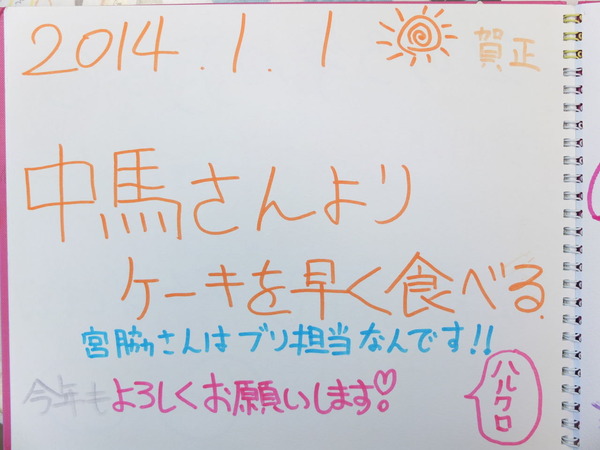 2014.1.1 賀正
中馬さんより
ケーキを早く食べる.
宮脇さんはブリ担当なんです!!
今年もよろしくお願いします♡
ハルクロ